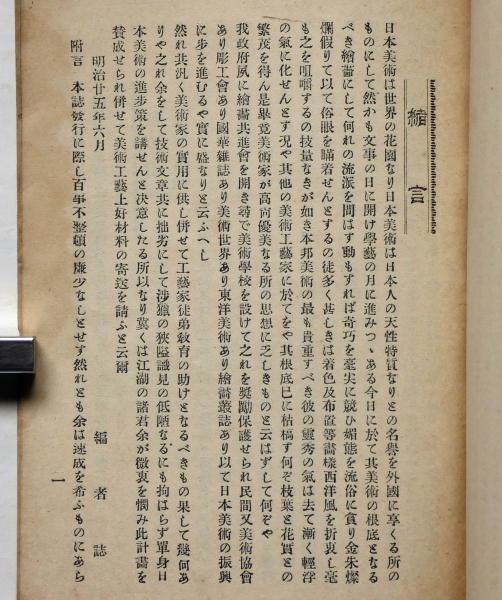 緒言
日本美術は世界の花園なり日本美術は日本人の天性特質なりとの名譽を外國に享くる所の
ものにして然かも文事の日に開け學藝の月に進みつゝある今日に於て其美術の根底となる
べき繪畵にして何れの流派を問はず動もすれば奇巧を毫尖に競ひ媚態を流俗に貪り金朱燦
爛假りて以て俗眼を瞞着せんとするの徒多く甚しきは着色及布置等畵樣西洋風を折衷し毫
も之を咀嚼するの技量なきが如き本邦美術の最も貴重すべき彼の靈秀の氣は去て漸く輕浮
の氣に化せんとす况や其他の美術工藝家に於てをや其根底已に枯槁す何ぞ枝葉と花實との
繁茂を得ん是畢竟美術家が高尙優美なる所の思想に乏しきものと云はずして何ぞや
我政府夙に繪畵共進會を開き尋で美術學校を設けて之れを奬勵保護せられ民間又美術協會
あり彫工會あり國華雜誌あり美術世界あり東洋美術あり繪畵叢誌あり以て日本美術の振興
に步を進むるや實に盛なりと云ふへし
然れ共汎く美術家の實用に供し併せて工藝家徒弟敎育の助けとなるべきもの果して幾何あ
りや之れ余をして技術文章共に拙劣にして涉獵の狹隘識見の低陋なるにも拘はらず單身日
本美術の進步策を講ぜんと决意したる所以なり冀くは江湖の諸君余が微衷を憫み此計畵を
賛成せられ併せて美術工藝上好材料の寄送を請ふと云爾
明治廿五年六月
編者誌
附言 本誌發行に際し百事不整頓の廉少なしとせず然れとも余は速成を希ふものにあら
一